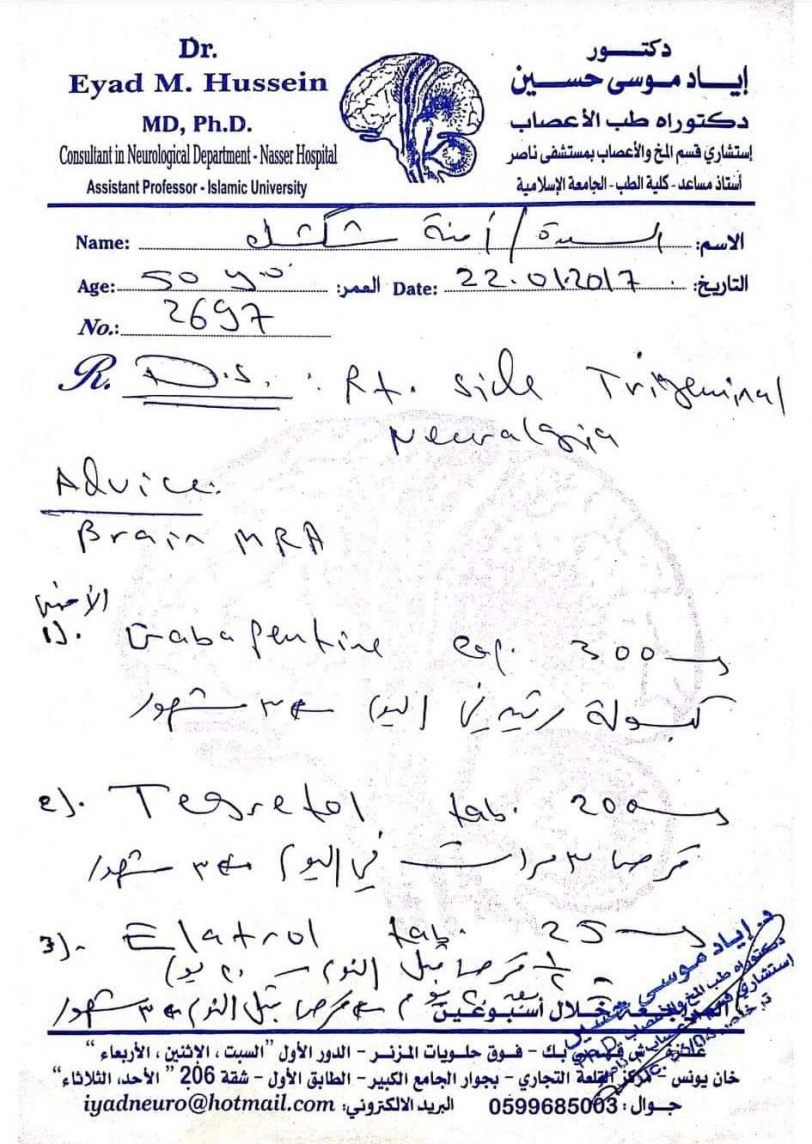 Dr.
Eyad M. Hussein
MD, Ph.D.
Consultant in Neurological Department - Nasser Hospital
Assistant Professor - Islamic University
دكتور
إياد موسى حسين
دكتوراه طب الأعصاب
إستشاري قسم المخ والأعصاب بمستشفى ناصر
أستاذ مساعد - كلية الطب - الجامعة الإسلامية
Name: السيدة / آمنة :الاسم
Age: 50 :العمر Date: 22.01.2017 :التاريخ
No.: 2697
R. D.S. : Rt. side Trigeminal
Neuralgia
Advice:
Brain MRA
1). Gabapentine cap. 300
كبسولة مرتين في اليوم ← ٣ شهور
2). Tegretol tab. 200
قرص ٣ مرات في اليوم ← ٣ شهور
3). Elatrol tab. 25
½ قرص قبل النوم
خلال أسبوعين قرص قبل النوم ← ٣ شهور
فوق حلويات المزنر - الدور الأول "السبت ، الاثنين ، الأربعاء"
خان يونس - مركز القلعة التجاري - بجوار الجامع الكبير - الطابق الأول - شقة 206 "الأحد، الثلاثاء"
جوال : 0599685003 البريد الالكتروني: iyadneuro@hotmail.com
د. إياد موسى حسين
دكتوراه طب المخ والأعصاب